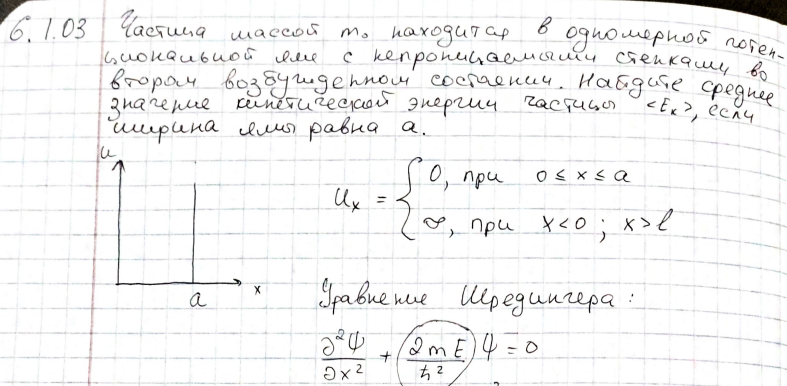 6.1.03 Частица массой m₀ находится в одномерной потен-
циональной яме с непроницаемыми стенками во
втором возбужденном состоянии. Найдите среднее
значение кинетической энергии частицы <Eк>, если
ширина ямы равна a.
u
Uₓ = { 0, при 0 ≤ x ≤ a
∞, при x < 0 ; x > l
a x
Уравнение Шредингера :
∂²Ψ/∂x² + (2mE/ħ²) Ψ = 0